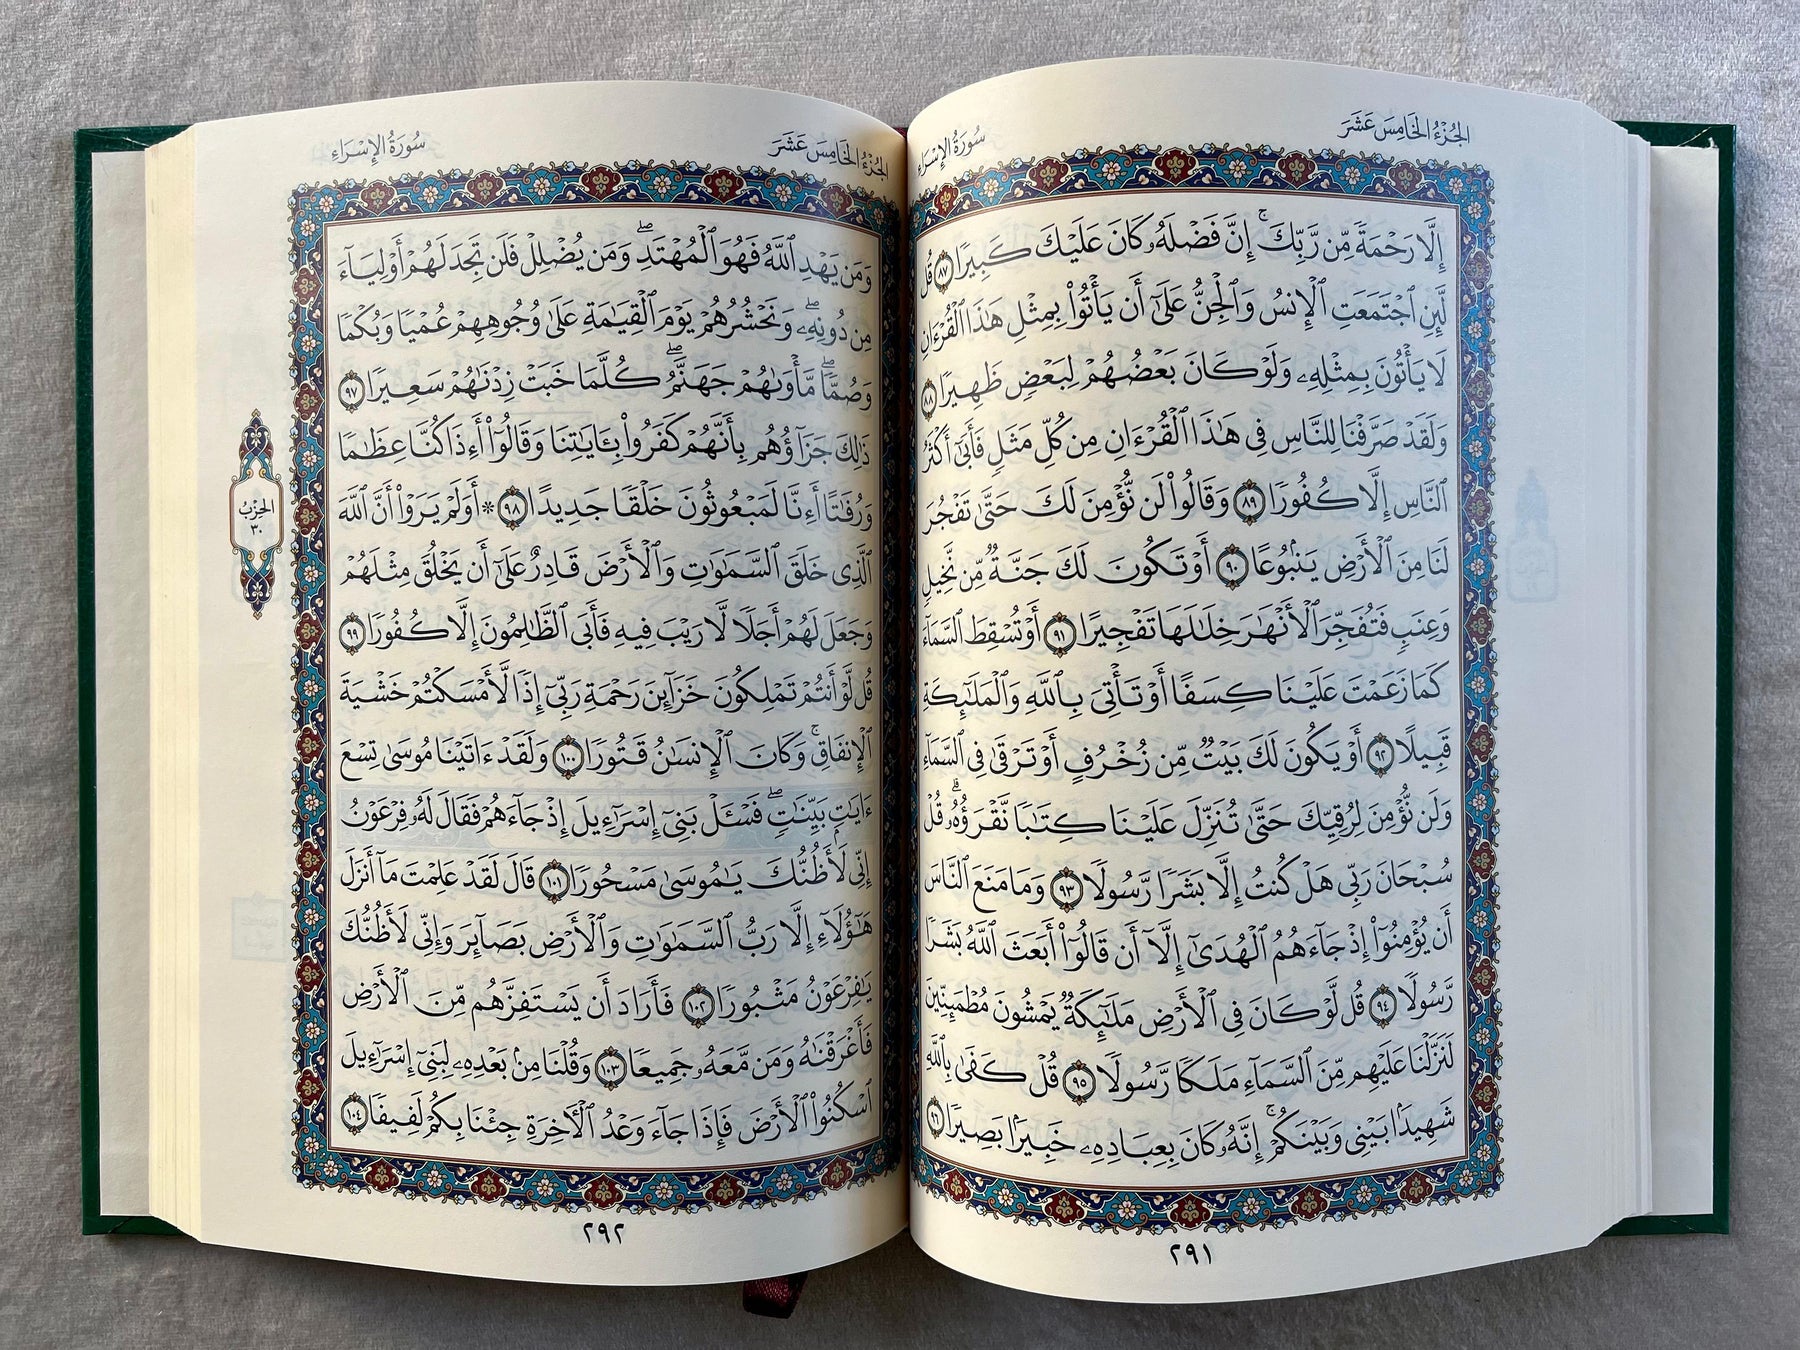 الجزء الخامس عشر
سورة الإسراء
إِلَّا رَحْمَةً مِّن رَّبِّكَ ۚ إِنَّ فَضْلَهُۥ كَانَ عَلَيْكَ كَبِيرًا ٨٧ قُل
لَّئِنِ ٱجْتَمَعَتِ ٱلْإِنسُ وَٱلْجِنُّ عَلَىٰٓ أَن يَأْتُوا۟ بِمِثْلِ هَٰذَا ٱلْقُرْءَانِ
لَا يَأْتُونَ بِمِثْلِهِۦ وَلَوْ كَانَ بَعْضُهُمْ لِبَعْضٍ ظَهِيرًا ٨٨
وَلَقَدْ صَرَّفْنَا لِلنَّاسِ فِى هَٰذَا ٱلْقُرْءَانِ مِن كُلِّ مَثَلٍ فَأَبَىٰٓ أَكْثَرُ
ٱلنَّاسِ إِلَّا كُفُورًا ٨٩ وَقَالُوا۟ لَن نُّؤْمِنَ لَكَ حَتَّىٰ تَفْجُرَ
لَنَا مِنَ ٱلْأَرْضِ يَنۢبُوعًا ٩٠ أَوْ تَكُونَ لَكَ جَنَّةٌ مِّن نَّخِيلٍ
وَعِنَبٍ فَتُفَجِّرَ ٱلْأَنْهَٰرَ خِلَٰلَهَا تَفْجِيرًا ٩١ أَوْ تُسْقِطَ ٱلسَّمَآءَ
كَمَا زَعَمْتَ عَلَيْنَا كِسَفًا أَوْ تَأْتِىَ بِٱللَّهِ وَٱلْمَلَٰٓئِكَةِ
قَبِيلًا ٩٢ أَوْ يَكُونَ لَكَ بَيْتٌ مِّن زُخْرُفٍ أَوْ تَرْقَىٰ فِى ٱلسَّمَآءِ
وَلَن نُّؤْمِنَ لِرُقِيِّكَ حَتَّىٰ تُنَزِّلَ عَلَيْنَا كِتَٰبًا نَّقْرَؤُهُۥ ۗ قُلْ
سُبْحَانَ رَبِّى هَلْ كُنتُ إِلَّا بَشَرًا رَّسُولًا ٩٣ وَمَا مَنَعَ ٱلنَّاسَ
أَن يُؤْمِنُوٓا۟ إِذْ جَآءَهُمُ ٱلْهُدَىٰٓ إِلَّآ أَن قَالُوٓا۟ أَبَعَثَ ٱللَّهُ بَشَرًا
رَّسُولًا ٩٤ قُل لَّوْ كَانَ فِى ٱلْأَرْضِ مَلَٰٓئِكَةٌ يَمْشُونَ مُطْمَئِنِّينَ
لَنَزَّلْنَا عَلَيْهِم مِّنَ ٱلسَّمَآءِ مَلَكًا رَّسُولًا ٩٥ قُلْ كَفَىٰ بِٱللَّهِ
شَهِيدًۢا بَيْنِى وَبَيْنَكُمْ ۚ إِنَّهُۥ كَانَ بِعِبَادِهِۦ خَبِيرًۢا بَصِيرًا ٩٦
٢٩١
الجزء الخامس عشر
سورة الإسراء
وَمَن يَهْدِ ٱللَّهُ فَهُوَ ٱلْمُهْتَدِ ۖ وَمَن يُضْلِلْ فَلَن تَجِدَ لَهُمْ أَوْلِيَآءَ
مِن دُونِهِۦ ۖ وَنَحْشُرُهُمْ يَوْمَ ٱلْقِيَٰمَةِ عَلَىٰ وُجُوهِهِمْ عُمْيًا وَبُكْمًا
وَصُمًّا ۖ مَّأْوَىٰهُمْ جَهَنَّمُ ۖ كُلَّمَا خَبَتْ زِدْنَٰهُمْ سَعِيرًا ٩٧
ذَٰلِكَ جَزَآؤُهُم بِأَنَّهُمْ كَفَرُوا۟ بِـَٔايَٰتِنَا وَقَالُوٓا۟ أَءِذَا كُنَّا عِظَٰمًا
وَرُفَٰتًا أَءِنَّا لَمَبْعُوثُونَ خَلْقًا جَدِيدًا ٩٨ * أَوَلَمْ يَرَوْا۟ أَنَّ ٱللَّهَ
ٱلَّذِى خَلَقَ ٱلسَّمَٰوَٰتِ وَٱلْأَرْضَ قَادِرٌ عَلَىٰٓ أَن يَخْلُقَ مِثْلَهُمْ
وَجَعَلَ لَهُمْ أَجَلًا لَّا رَيْبَ فِيهِ فَأَبَى ٱلظَّٰلِمُونَ إِلَّا كُفُورًا ٩٩
قُل لَّوْ أَنتُمْ تَمْلِكُونَ خَزَآئِنَ رَحْمَةِ رَبِّىٓ إِذًا لَّأَمْسَكْتُمْ خَشْيَةَ
ٱلْإِنفَاقِ ۚ وَكَانَ ٱلْإِنسَٰنُ قَتُورًا ١٠٠ وَلَقَدْ ءَاتَيْنَا مُوسَىٰ تِسْعَ
ءَايَٰتٍۭ بَيِّنَٰتٍ ۖ فَسْـَٔلْ بَنِىٓ إِسْرَٰٓءِيلَ إِذْ جَآءَهُمْ فَقَالَ لَهُۥ فِرْعَوْنُ
إِنِّى لَأَظُنُّكَ يَٰمُوسَىٰ مَسْحُورًا ١٠١ قَالَ لَقَدْ عَلِمْتَ مَآ أَنزَلَ
هَٰٓؤُلَآءِ إِلَّا رَبُّ ٱلسَّمَٰوَٰتِ وَٱلْأَرْضِ بَصَآئِرَ وَإِنِّى لَأَظُنُّكَ
يَٰفِرْعَوْنُ مَثْبُورًا ١٠٢ فَأَرَادَ أَن يَسْتَفِزَّهُم مِّنَ ٱلْأَرْضِ
فَأَغْرَقْنَٰهُ وَمَن مَّعَهُۥ جَمِيعًا ١٠٣ وَقُلْنَا مِنۢ بَعْدِهِۦ لِبَنِىٓ إِسْرَٰٓءِيلَ
ٱسْكُنُوا۟ ٱلْأَرْضَ فَإِذَا جَآءَ وَعْدُ ٱلْـَٔاخِرَةِ جِئْنَا بِكُمْ لَفِيفًا ١٠٤
الحزب
٣٠
٢٩٢